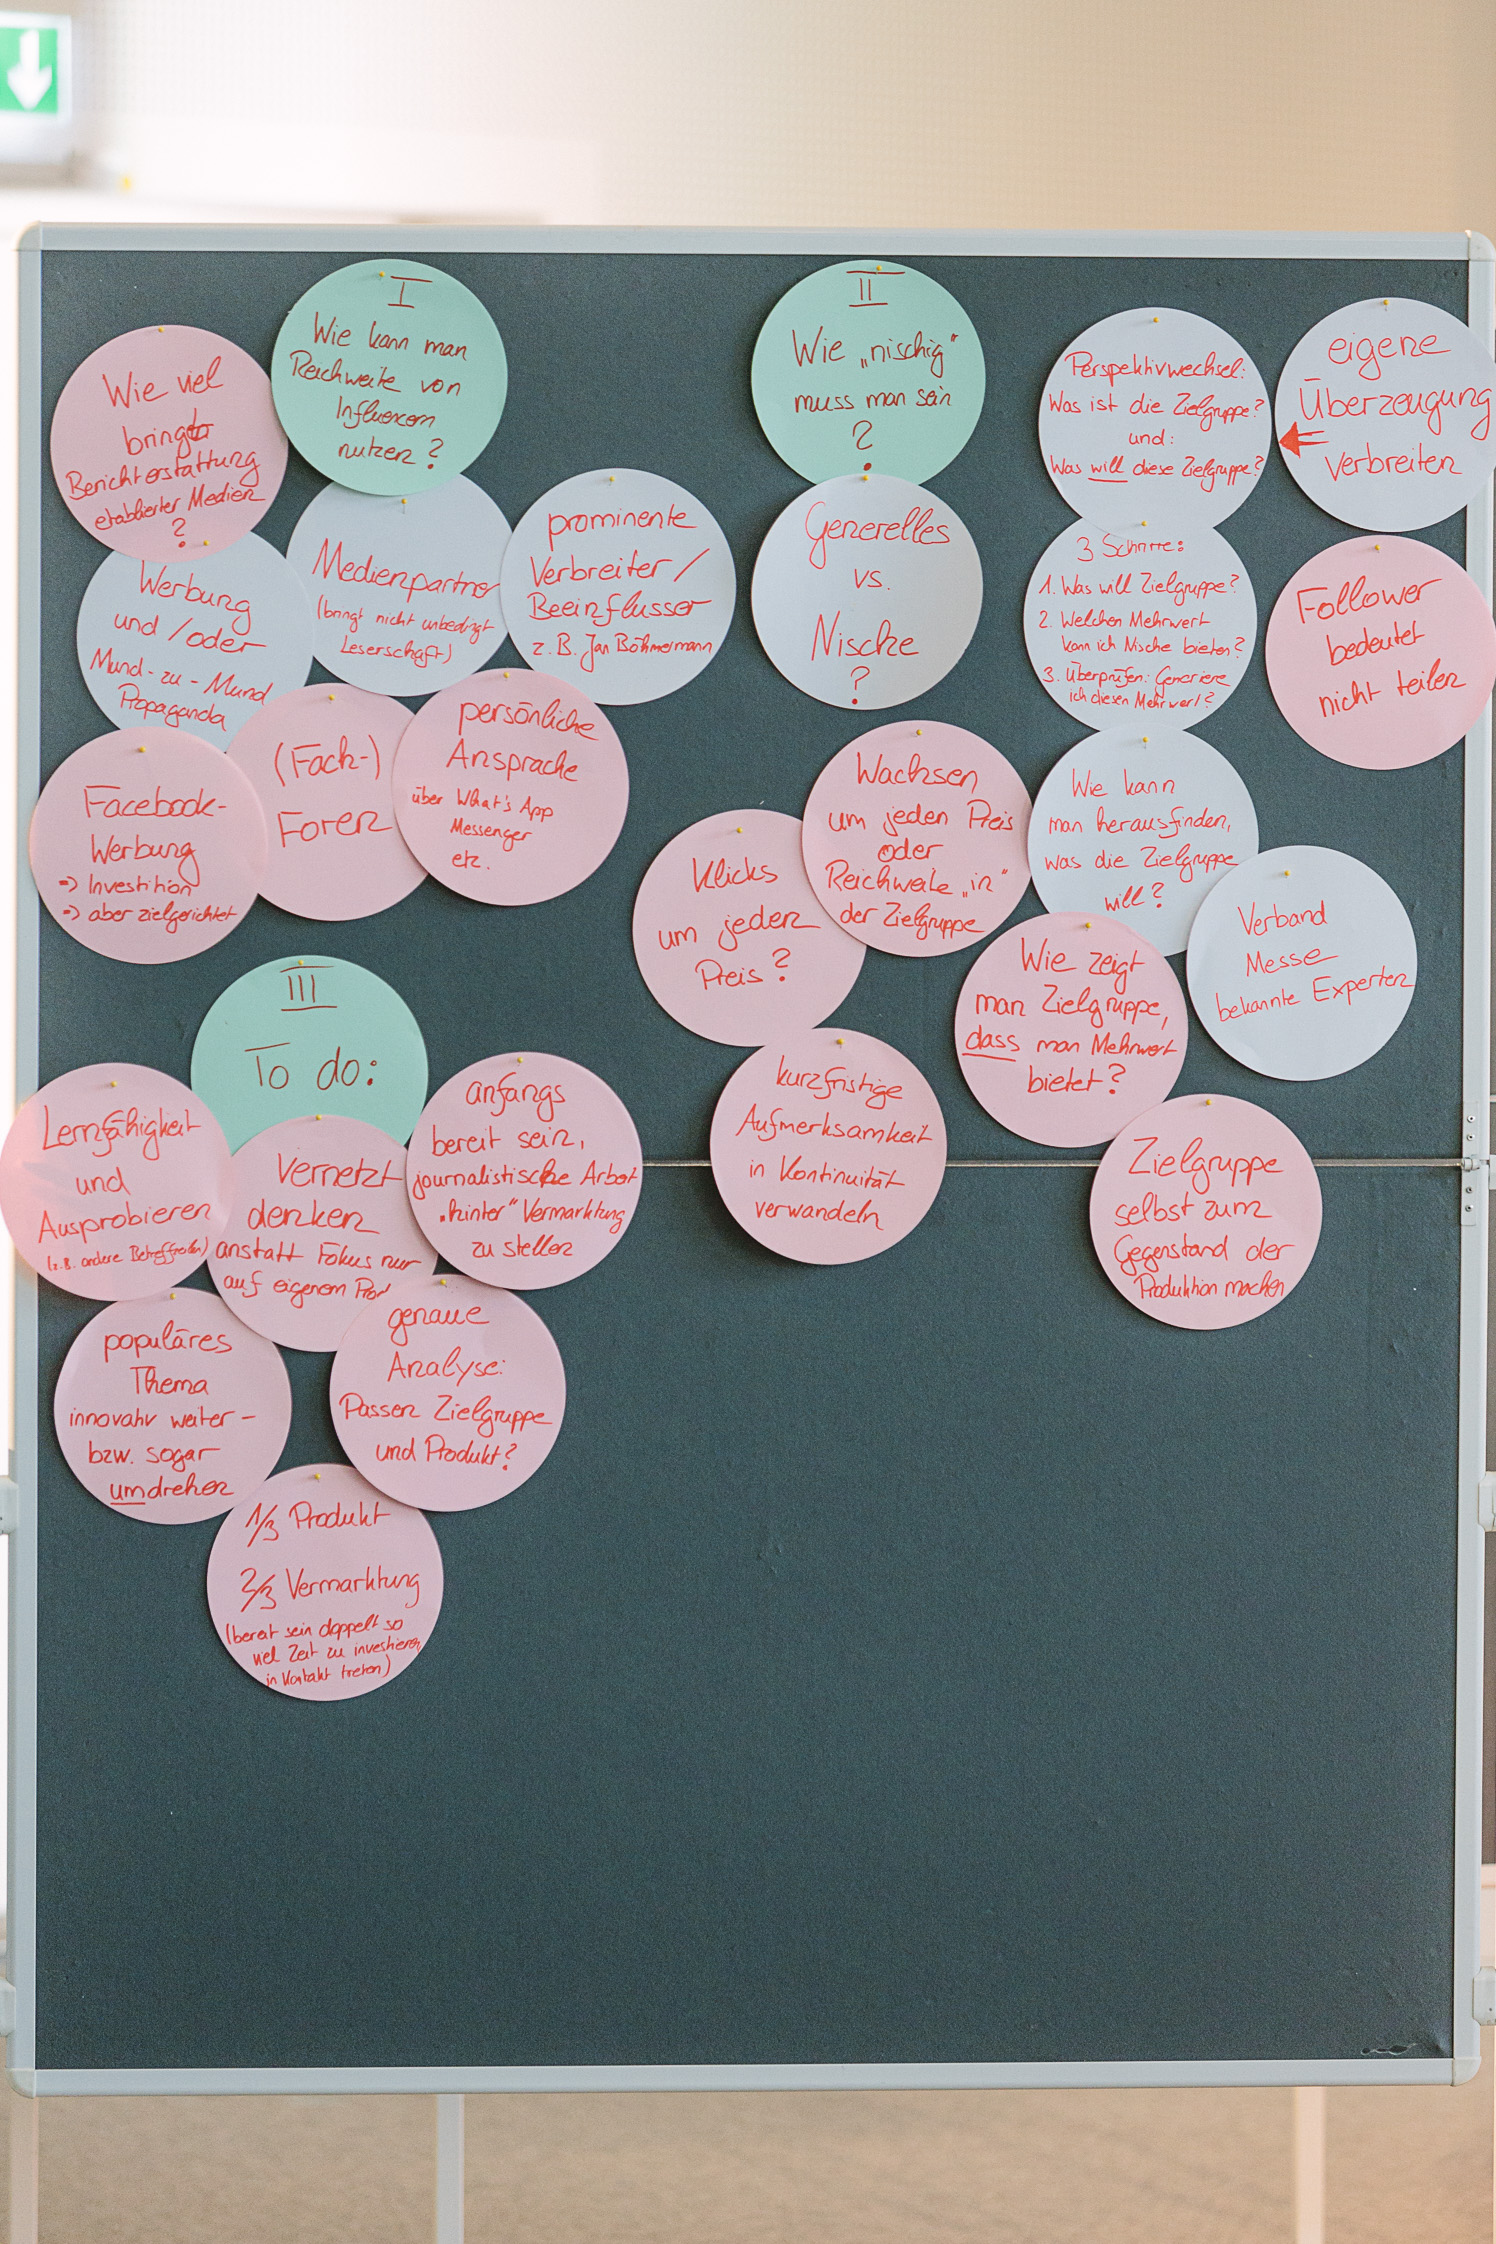 I
Wie kann man
Reichweite von
Influencern
nutzen?
Wie viel
bringt
Berichterstattung
etablierter Medien
?
Werbung
und/oder
Mund-zu-Mund
Propaganda
Medienpartner
(bringt nicht unbedingt
Leserschaft)
prominente
Verbreiter/
Beeinflusser
z.B. Jan Böhmermann
Facebook-
Werbung
-> Investition
-> aber zielgerichtet
(Fach-)
Foren
persönliche
Ansprache
über What's App
Messenger
etc.
II
Wie „nischig"
muss man sein
?
Generelles
vs.
Nische
?
Perspektivwechsel:
Was ist die Zielgruppe?
und:
Was will diese Zielgruppe?
eigene
Überzeugung
verbreiten
3 Schritte:
1. Was will Zielgruppe?
2. Welchen Mehrwert
kann ich Nische bieten?
3. Überprüfen: Generiere
ich diesen Mehrwert?
Follower
bedeutet
nicht teilen
Wachsen
um jeden Preis
oder
Reichweite „in"
der Zielgruppe
Klicks
um jeden
Preis?
Wie kann
man herausfinden,
was die Zielgruppe
will?
Verband
Messe
bekannte Experten
Wie zeigt
man Zielgruppe,
dass man Mehrwert
bietet?
kurzfristige
Aufmerksamkeit
in Kontinuität
verwandeln
Zielgruppe
selbst zum
Gegenstand der
Produktion machen
III
To do:
Lernfähigkeit
und
Ausprobieren
(z.B. andere Betreffzeilen)
Vernetzt
denken
anstatt Fokus nur
auf eigenem
anfangs
bereit sein,
journalistische Arbeit
„hinter" Vermarktung
zu stellen
populäres
Thema
innovativ weiter-
bzw. sogar
umdrehen
genaue
Analyse:
Passen Zielgruppe
und Produkt?
1/3 Produkt
2/3 Vermarktung
(bereit sein doppelt so
viel Zeit zu investieren,
in Kontakt treten)